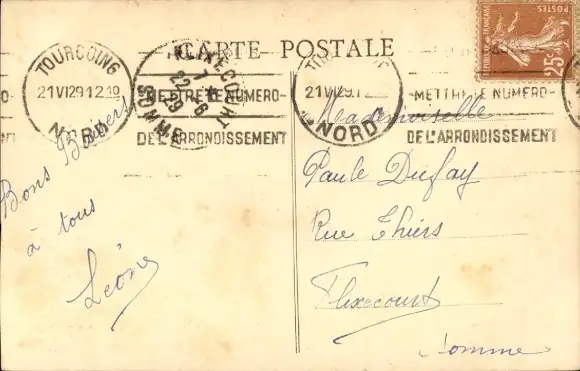 CARTE POSTALE
POSTES
25c
TOURCOING
21 VI 29 12
NORD
FLIXECOURT
7-
22-6
29
SOMME
METTRE LE NUMERO-
DE L'ARRONDISSEMENT
21 VI 29 12
NORD
METTRE LE NUMERO-
DE L'ARRONDISSEMENT
Bons Baisers
à tous
Léone
Mademoiselle
Paule Dufay
Rue Thiers
Flixecourt
Somme